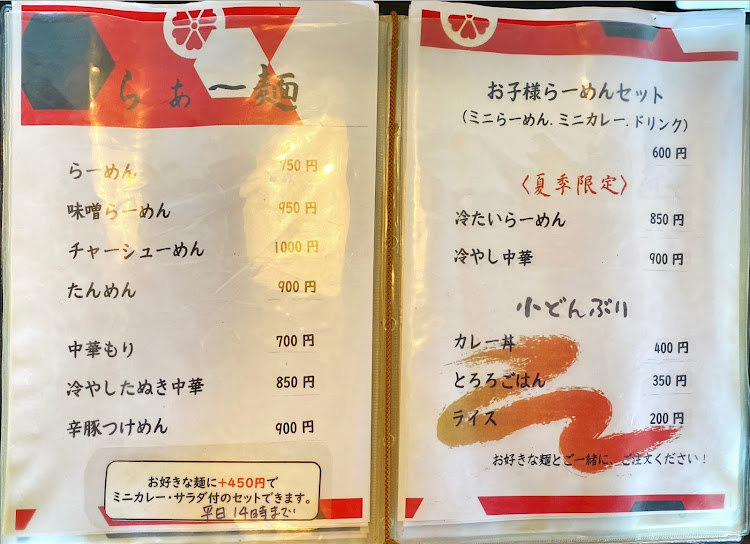 らぁー麺
らーめん 750円
味噌らーめん 950円
チャーシューめん 1000円
たんめん 900円
中華もり 700円
冷やしたぬき中華 850円
辛豚つけめん 900円
お好きな麺に+450円で
ミニカレー・サラダ付のセットできます。
平日 14時まで
お子様らーめんセット
(ミニらーめん.ミニカレー.ドリンク)
600円
〈夏季限定〉
冷たいらーめん 850円
冷やし中華 900円
小どんぶり
カレー丼 400円
とろろごはん 350円
ライス 200円
お好きな麺とご一緒に、ご注文ください!